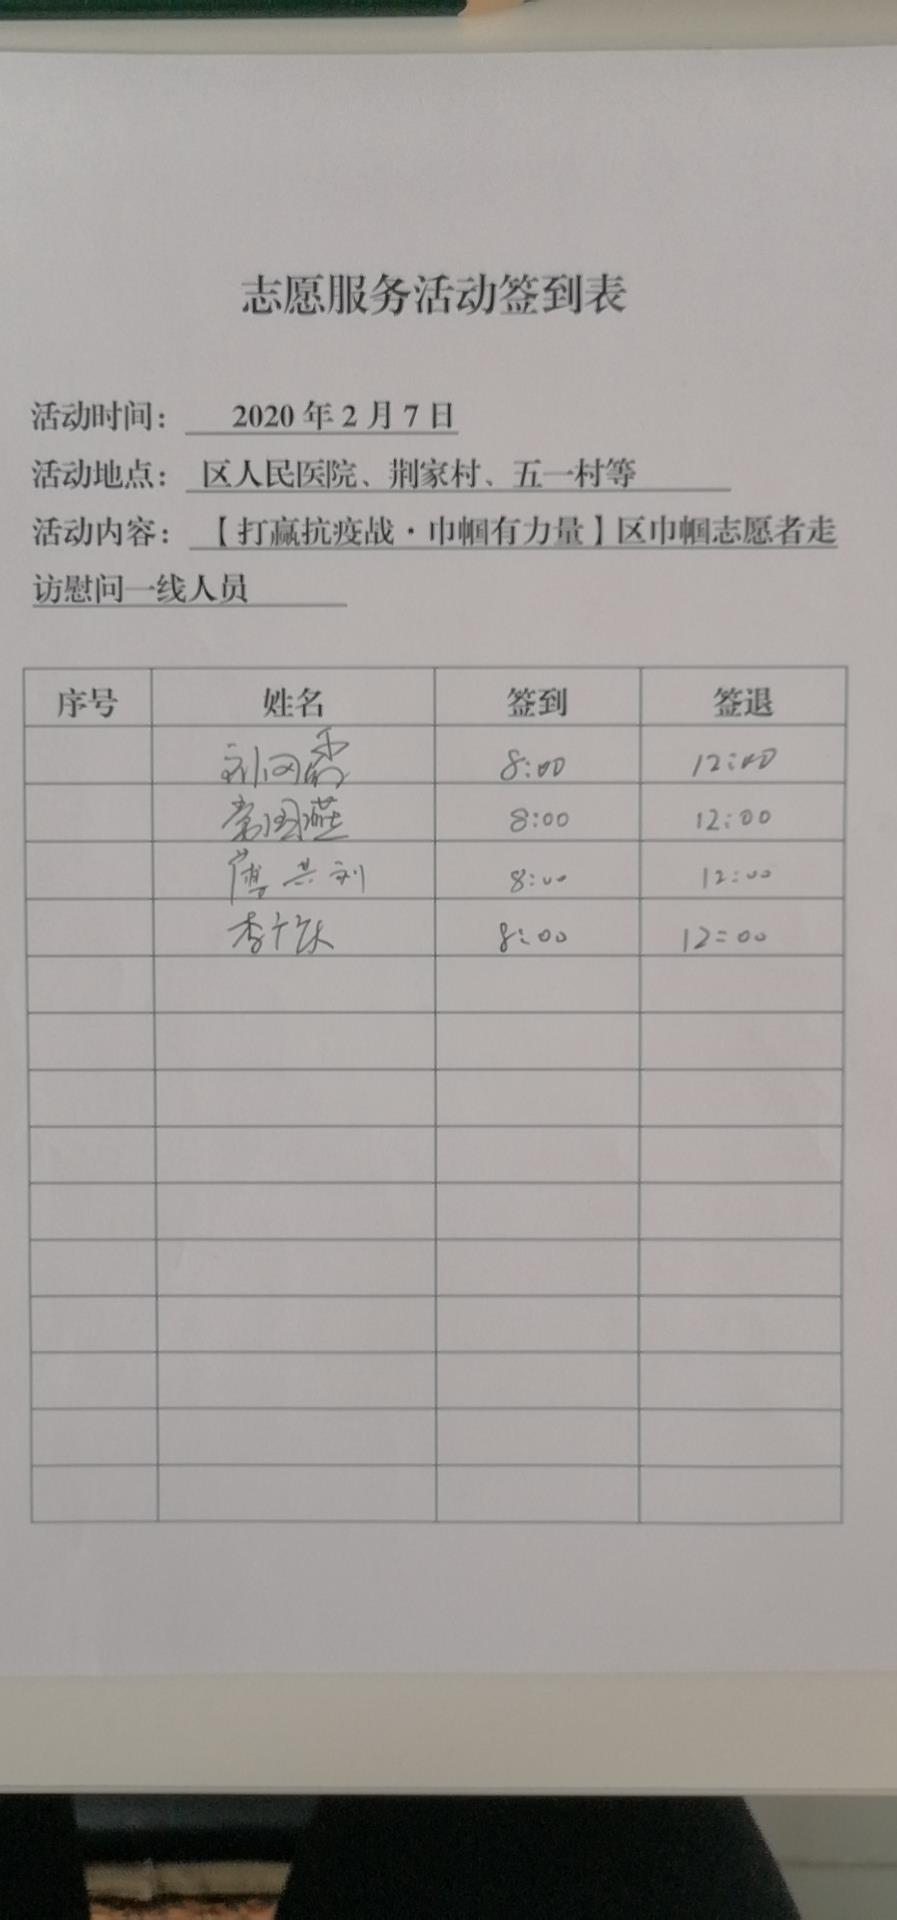 志愿服务活动签到表
活动时间： 2020 年 2 月 7 日
活动地点： 区人民医院、荆家村、五一村等
活动内容： 【打赢抗疫战·巾帼有力量】区巾帼志愿者走
访慰问一线人员
序号 姓名 签到 签退
8:00 12:00
常国燕 8:00 12:00
8:00 12:00
8:00 12:00